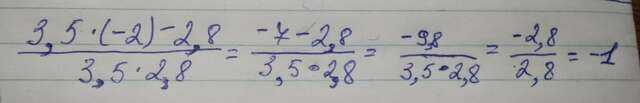 (3,5·(-2)-2,8)/(3,5·2,8) = (-7-2,8)/(3,5·2,8) = (-9,8)/(3,5·2,8) = (-2,8)/(2,8) = -1